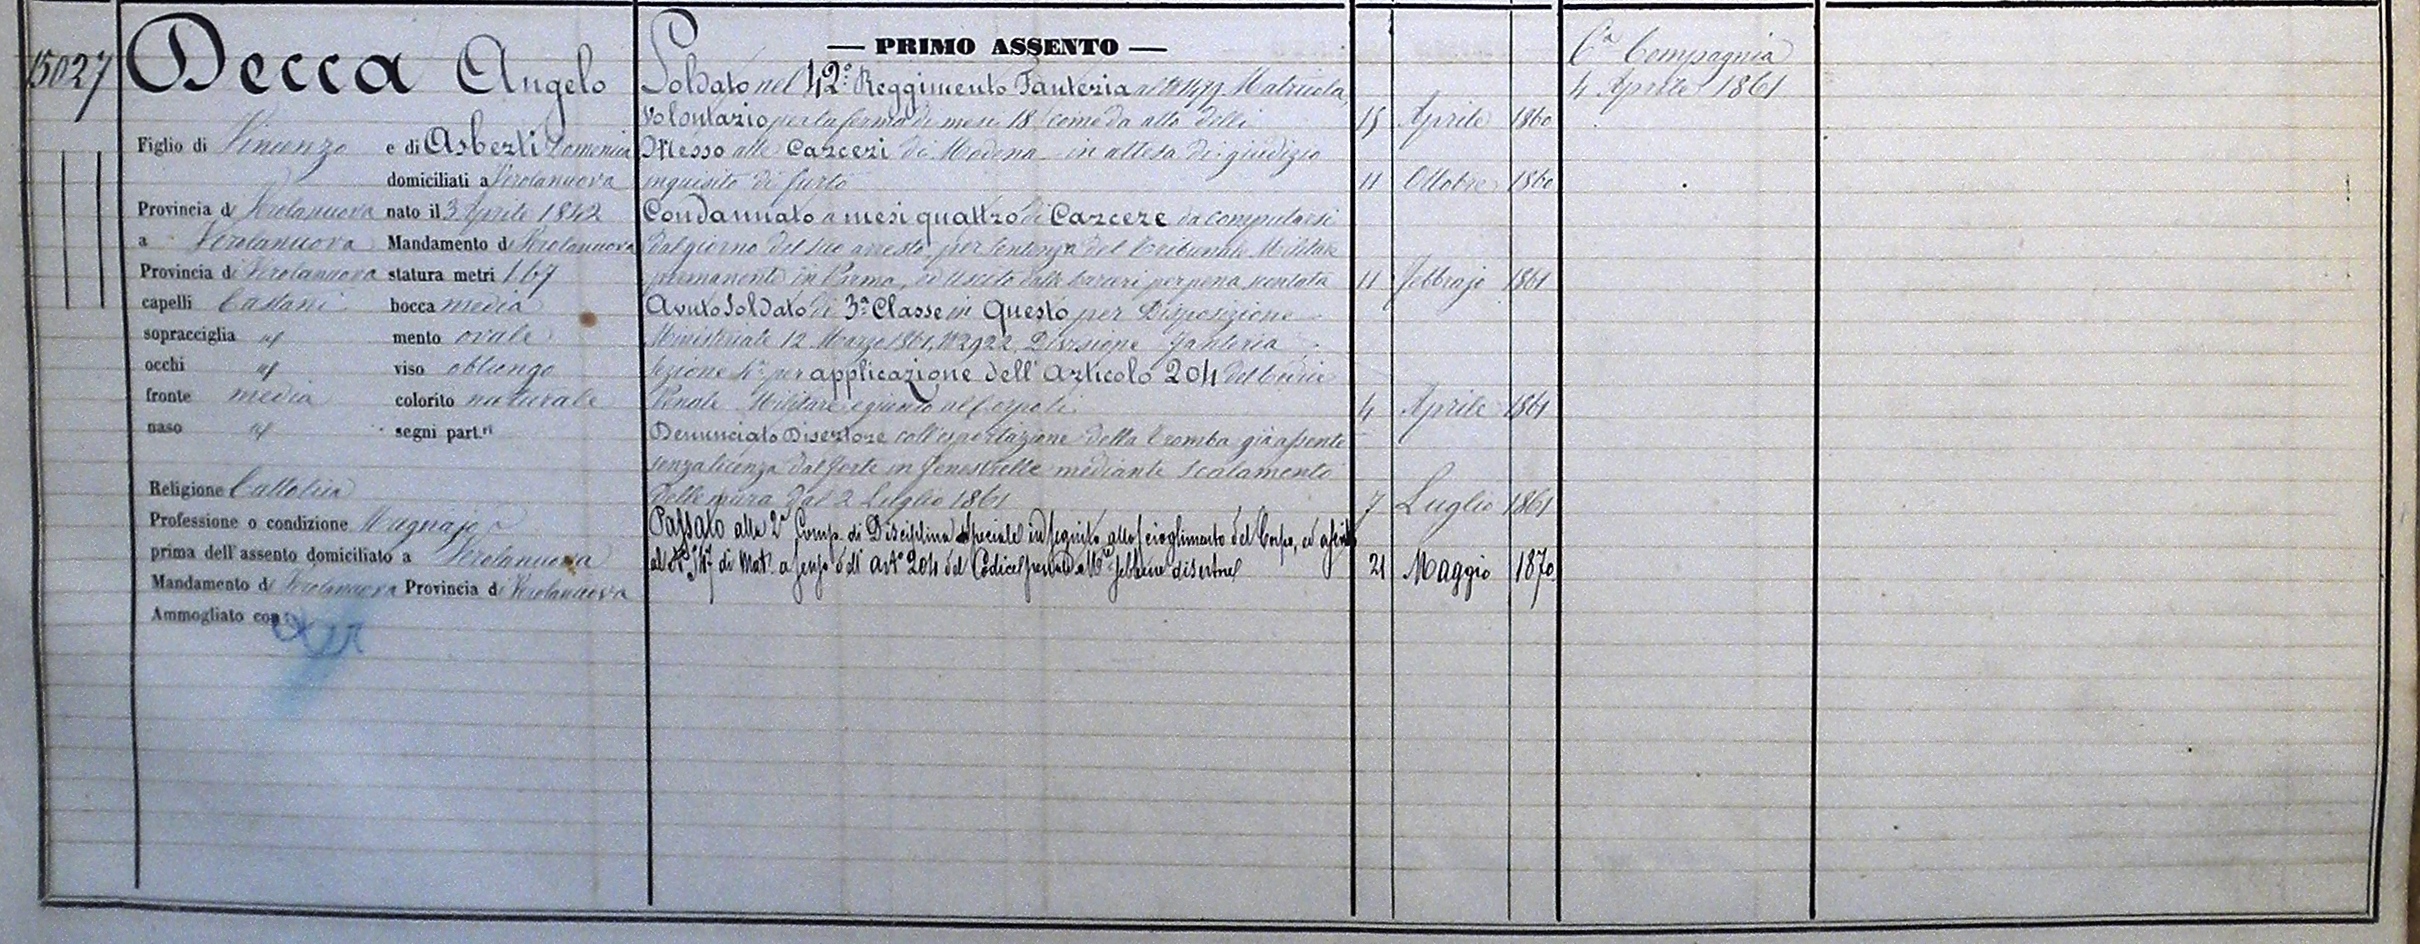 15027 Decca Angelo
Figlio di Vincenzo e di Asberti Domenica
domiciliati a Verolanuova
Provincia di Verolanuova nato il 3 Aprile 1842
a Verolanuova Mandamento di Verolanuova
Provincia di Verolanuova statura metri 1.67
capelli Castani bocca media
sopracciglia id mento ovale
occhi id viso oblungo
fronte media colorito naturale
naso id segni part.ri
Religione Cattolica
Professione o condizione Magnajo
prima dell'assento domiciliato a Verolanuova
Mandamento di Verolanuova Provincia di Verolanuova
Ammogliato con
— PRIMO ASSENTO —
Soldato nel 42° Reggimento Fanteria al N° 1479 Matricola,
Volontario per la ferma di mesi 18 come da atto delli 15 Aprile 1860
Messo alle Carceri di Modena in attesa di giudizio
inquisito di furto 11 Ottobre 1860
Condannato a mesi quattro di Carcere da computarsi
dal giorno del suo arresto, per sentenza del Tribunale Militare
permanente in Parma, ed uscito dalle carceri per pena scontata 11 Febbrajo 1861
Avuto Soldato di 3a Classe in Questo per Disposizione
Ministeriale 12 Marzo 1861, N° 2922 Divisione Fanteria
Sezione 1a per applicazione dell'Articolo 204 del Codice
Penale Militare e giunto al Corpo li 4 Aprile 1861
Denunciato Disertore coll'esportazione della tromba già assente
senza licenza dal forte in Fenestrelle mediante scalamento
delle mura dal 2 Luglio 1861 7 Luglio 1861
Passato alla 2a Comp. di Disciplina Speciale in seguito allo scioglimento del Corpo, ed
al N° di Mat. a senso dell'art° 204 del Codice penale M.re sebbene disertore 21 Maggio 1870
6a Compagnia
4 Aprile 1861